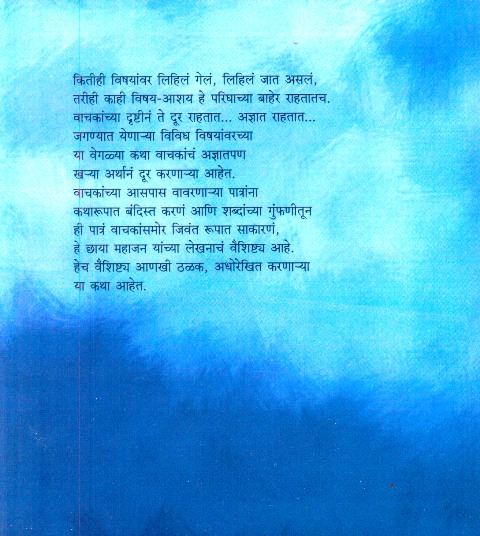 कितीही विषयांवर लिहिलं गेलं, लिहिलं जात असलं,
तरीही काही विषय-आशय हे परिघाच्या बाहेर राहतातच.
वाचकांच्या दृष्टीनं ते दूर राहतात... अज्ञात राहतात...
जगण्यात येणाऱ्या विविध विषयांवरच्या
या वेगळ्या कथा वाचकांचं अज्ञातपण
खऱ्या अर्थानं दूर करणाऱ्या आहेत.
वाचकांच्या आसपास वावरणाऱ्या पात्रांना
कथारूपात बंदिस्त करणं आणि शब्दांच्या गुंफणीतून
ही पात्रं वाचकांसमोर जिवंत रूपात साकारणं,
हे छाया महाजन यांच्या लेखनाचं वैशिष्ट्य आहे.
हेच वैशिष्ट्य आणखी ठळक, अधोरेखित करणाऱ्या
या कथा आहेत.